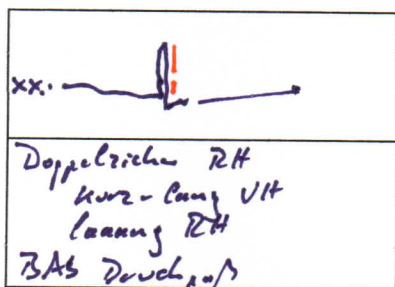 xx.
Doppelzieher RH
kurz-lang VH
laaang RH
BAS Druckpuß